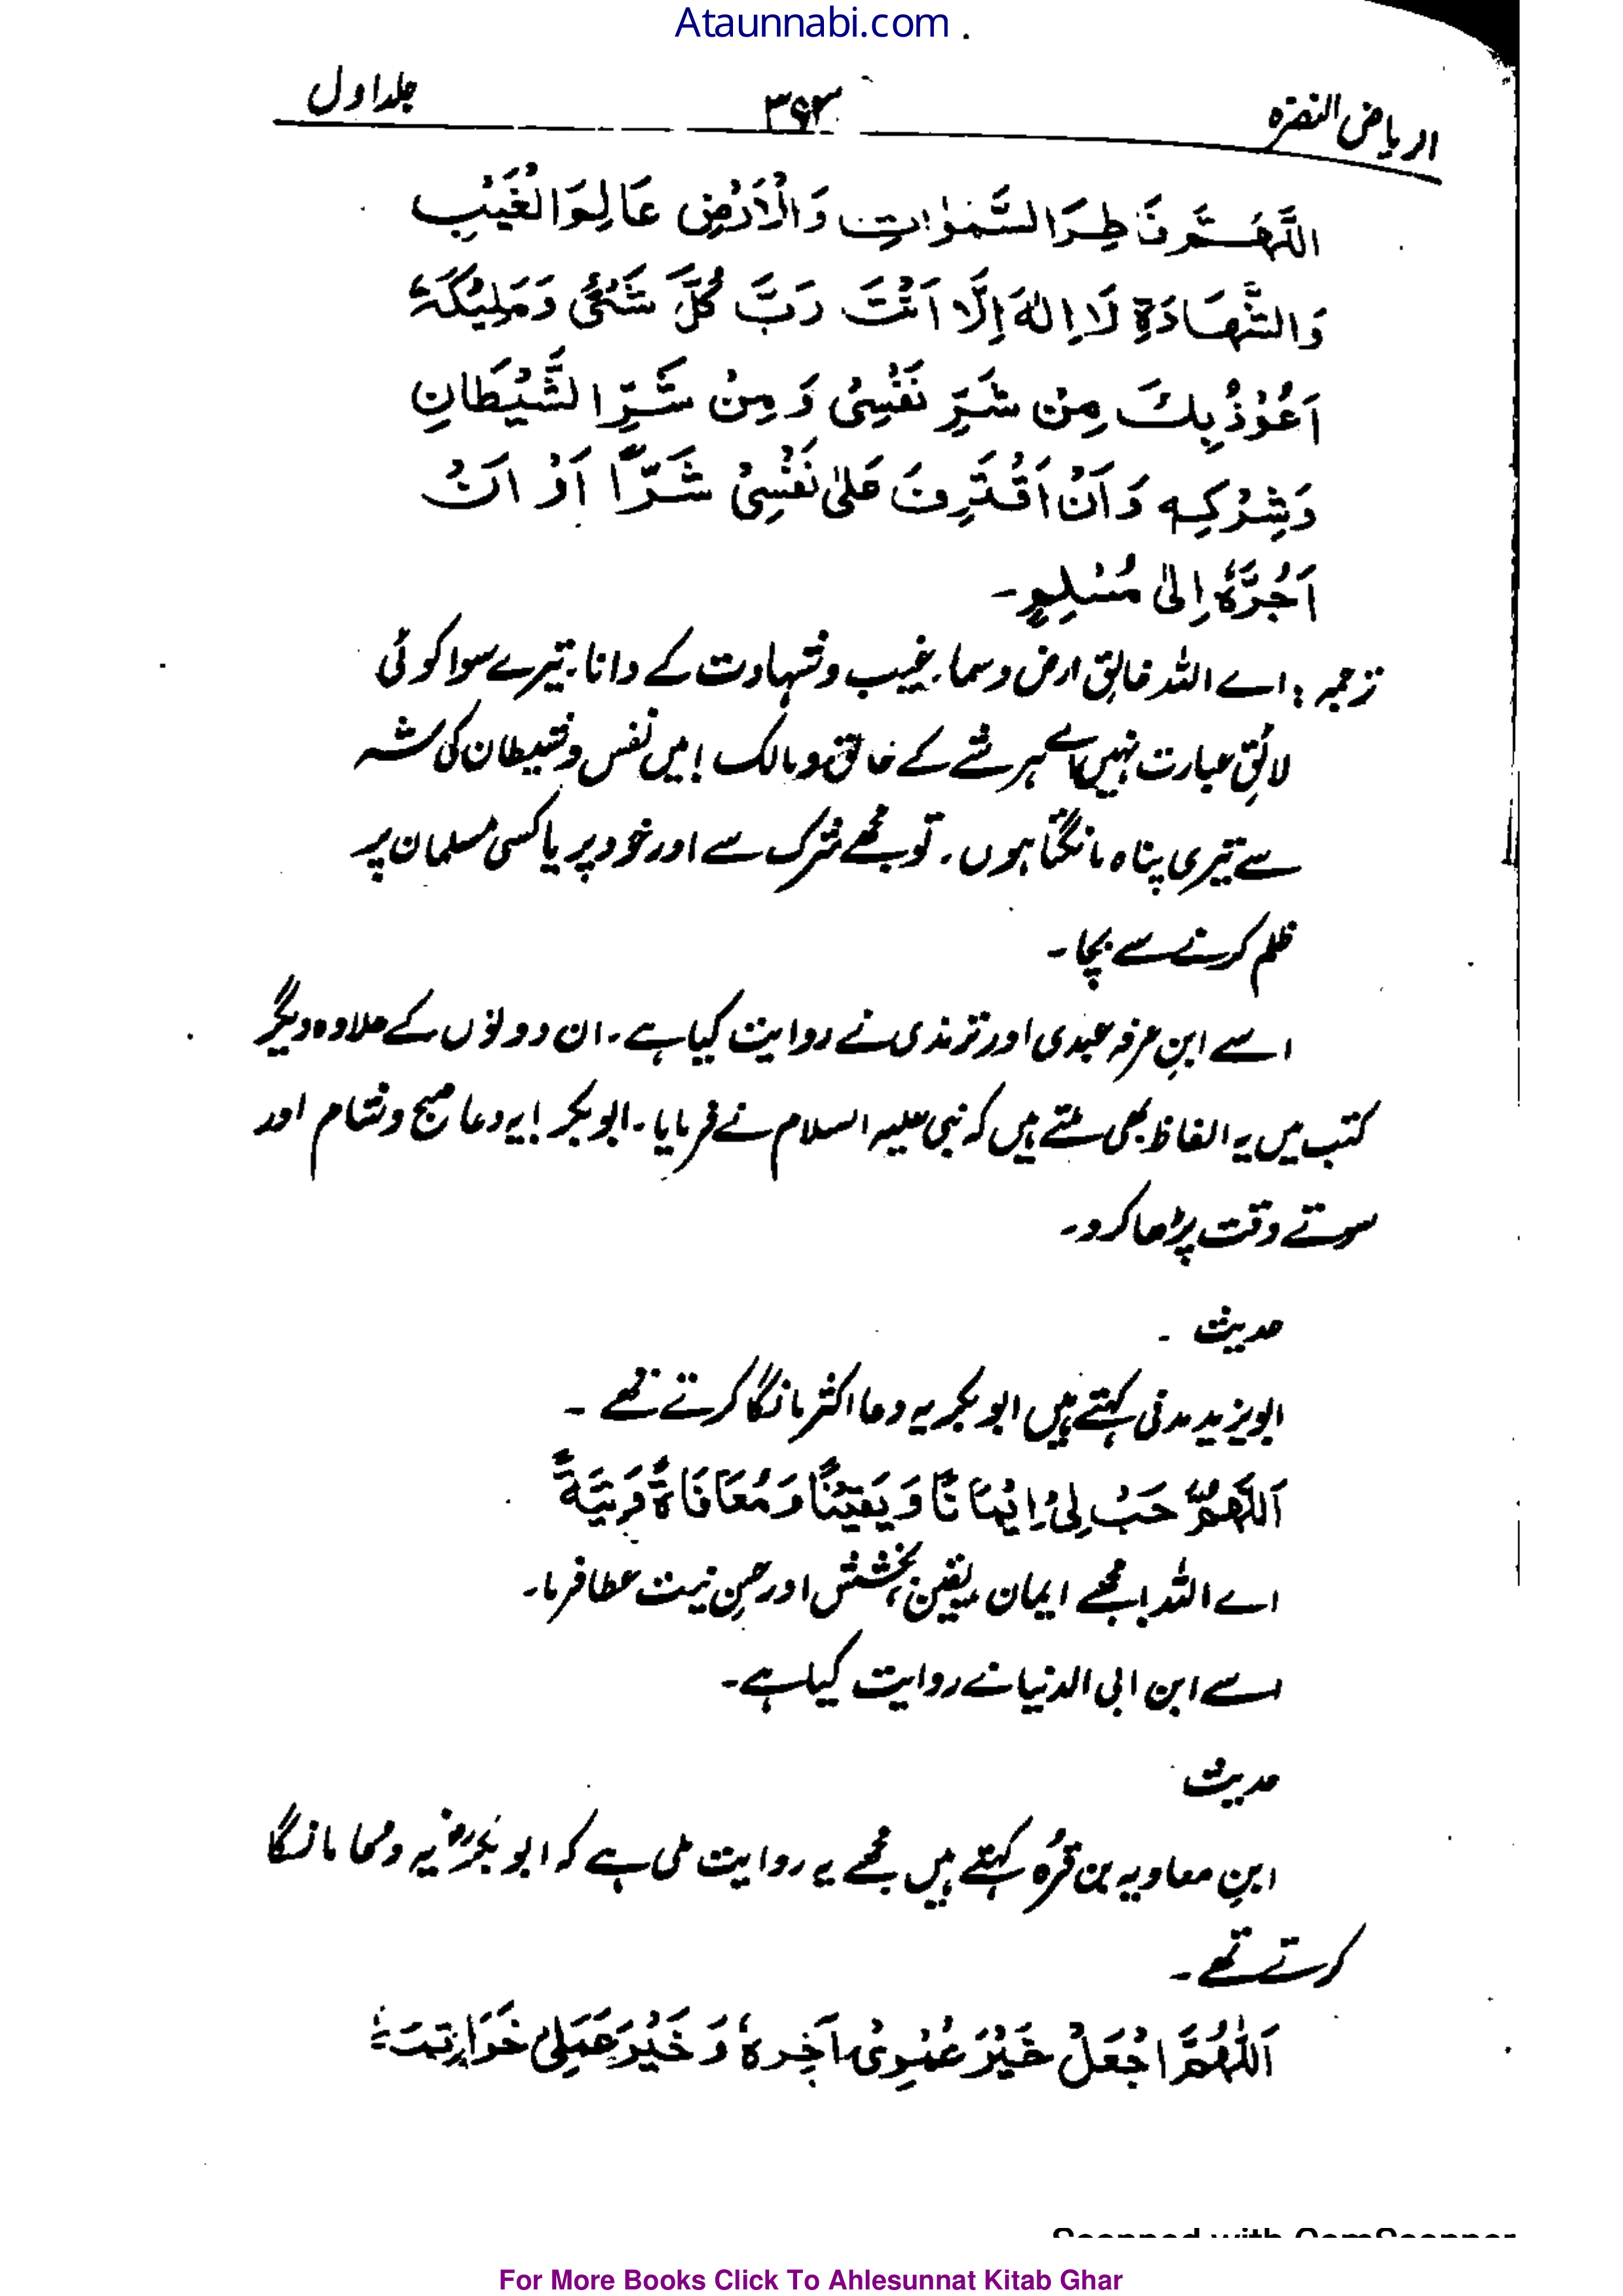 Ataunnabi.com
الریاض النضرہ ۳۶۳ جلد اول
اللَّهُمَّ فَاطِرَ السَّمٰوٰاتِ وَالْاَرْضِ عَالِمَ الْغَيْبِ
وَالشَّهَادَةِ لَا اِلٰهَ اِلَّا اَنْتَ رَبَّ كُلَّ شَئْیٍ وَمَلِيْكَهٗ
اَعُوْذُ بِكَ مِنْ شَرِّ نَفْسِیْ وَ مِنْ شَرِّ الشَّيْطَانِ
وَشِرْكِهٖ وَ اَنْ اَقْتَرِفَ عَلیٰ نَفْسِیْ شَرّاً اَوْ اَنْ
اَجُرَّهٗ اِلیٰ مُسْلِمٍ۔
ترجمہ : اے اللہ خالقِ ارض و سما، غیب و شہادت کے دانا، تیرے سوا کوئی
لائقِ عبادت نہیں اے ہر شے کے خالق و مالک! میں نفس و شیطان کی شر
سے تیری پناہ مانگتا ہوں۔ تو مجھے شرک سے اور خود پر یا کسی مسلمان پر
ظلم کرنے سے بچا۔
اسے ابنِ عرفہ عبدی اور ترمذی نے روایت کیا ہے۔ ان دونوں کے علاوہ دیگر
کتب میں یہ الفاظ بھی ملتے ہیں کہ نبی علیہ السلام نے فرمایا۔ ابوبکر! یہ دعا صبح و شام اور
سوتے وقت پڑھا کرو۔
حدیث ۔
ابویزید مدنی کہتے ہیں ابوبکر یہ دعا اکثر مانگا کرتے تھے ۔
اَللّٰهُمَّ هَبْ لِیْ اِيْمَانًا وَ يَقِيْنًا وَ مُعَافَاةً وَنِيَّةً
اے اللہ! مجھے ایمان، یقین، بخشش اور حسنِ نیت عطا فرما۔
اسے ابن ابی الدنیا نے روایت کیا ہے۔
حدیث
ابنِ معاویہ بن قرہ کہتے ہیں مجھے یہ روایت ملی ہے کہ ابوبکرؓ یہ دعا مانگا
کرتے تھے ۔
اَللّٰهُمَّ اجْعَلْ خَيْرَ عُمْرِیْ اٰخِرَهٗ وَ خَيْرَ عَمَلِیْ خَوَاتِمَهٗ
Scanned with CamScanner
For More Books Click To Ahlesunnat Kitab Ghar